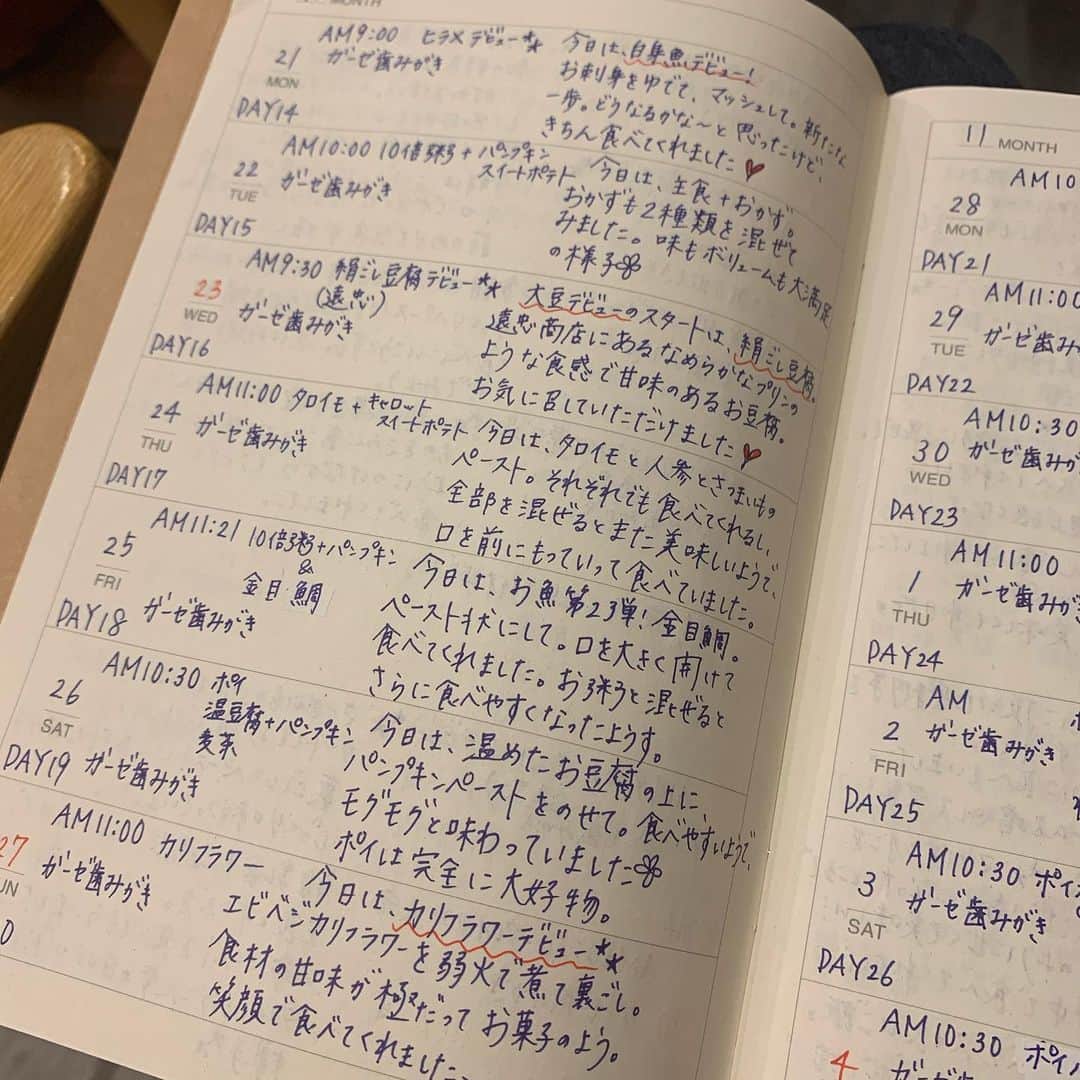 MONTH
21
MON
DAY14
AM9:00 ヒラメデビュー**
ガーゼ歯みがき
今日は、白身魚デビュー!
お刺身をゆでて、マッシュして。新たな
一歩。どうなるかな〜と思ったけど、
きちん食べてくれました♥
22
TUE
DAY15
AM10:00 10倍粥+パンプキン
スイートポテト
ガーゼ歯みがき
今日は、主食+おかず。
おかずも2種類を混ぜて
みました。味もボリュームも大満足
の様子
23
WED
DAY16
AM9:30 絹ごし豆腐デビュー**
(遠忠)
ガーゼ歯みがき
大豆デビューのスタートは、絹ごし豆腐。
遠忠商店にあるなめらかなプリンの
ような食感で甘味のあるお豆腐。
お気に召していただけました♥
24
THU
DAY17
AM11:00 タロイモ+キャロット
スイートポテト
ガーゼ歯みがき
今日は、タロイモと人参とさつまいもの
ペースト。それぞれでも食べてくれるし、
全部を混ぜるとまた美味しいようで、
口を前にもっていって食べていました。
25
FRI
DAY18
AM11:21 10倍粥+パンプキン
&
金目鯛
ガーゼ歯みがき
今日は、お魚第23弾!金目鯛。
ペースト状にして。口を大きく開けて
食べてくれました。お粥と混ぜると
さらに食べやすくなったようす。
26
SAT
DAY19
AM10:30 ポイ
温豆腐+パンプキン
麦茶
ガーゼ歯みがき
今日は、温めたお豆腐の上に
パンプキンペーストをのせて。食べやすいようで、
モグモグと味わっていました
ポイは完全に大好物。
27
UN
0
AM11:00 カリフラワー
ガーゼ歯みがき
今日は、カリフラワーデビュー**
エビベジカリフラワーを弱火で煮て裏ごし。
食材の甘味が極だってお菓子のよう。
笑顔で食べてくれました
11 MONTH
28
MON
DAY21
AM10
29
TUE
DAY22
AM11:00
ガーゼ歯みが
30
WED
DAY23
AM10:30
ガーゼ歯みが
1
THU
DAY24
AM11:00
ガーゼ歯みがき
2
FRI
DAY25
AM
ガーゼ歯みがき
3
SAT
DAY26
AM10:30 ポイ
ガーゼ歯みがき
4
AM10:30 ポイ
ガーゼ歯みがき